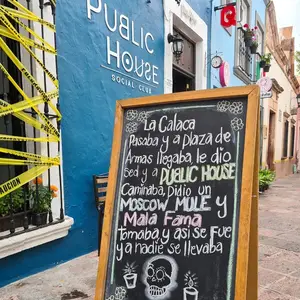 PUBLIC
HOUSE
SOCIAL CLUB
CAUTION
La Calaca
Pasaba y a plaza de
Armas llegaba, le dio
Sed y a PUBLIC HOUSE
Caminaba, Pidio un
MOSCOW MULE y
Mala Fama
tomaba y así se fue
y a nadie se llevaba